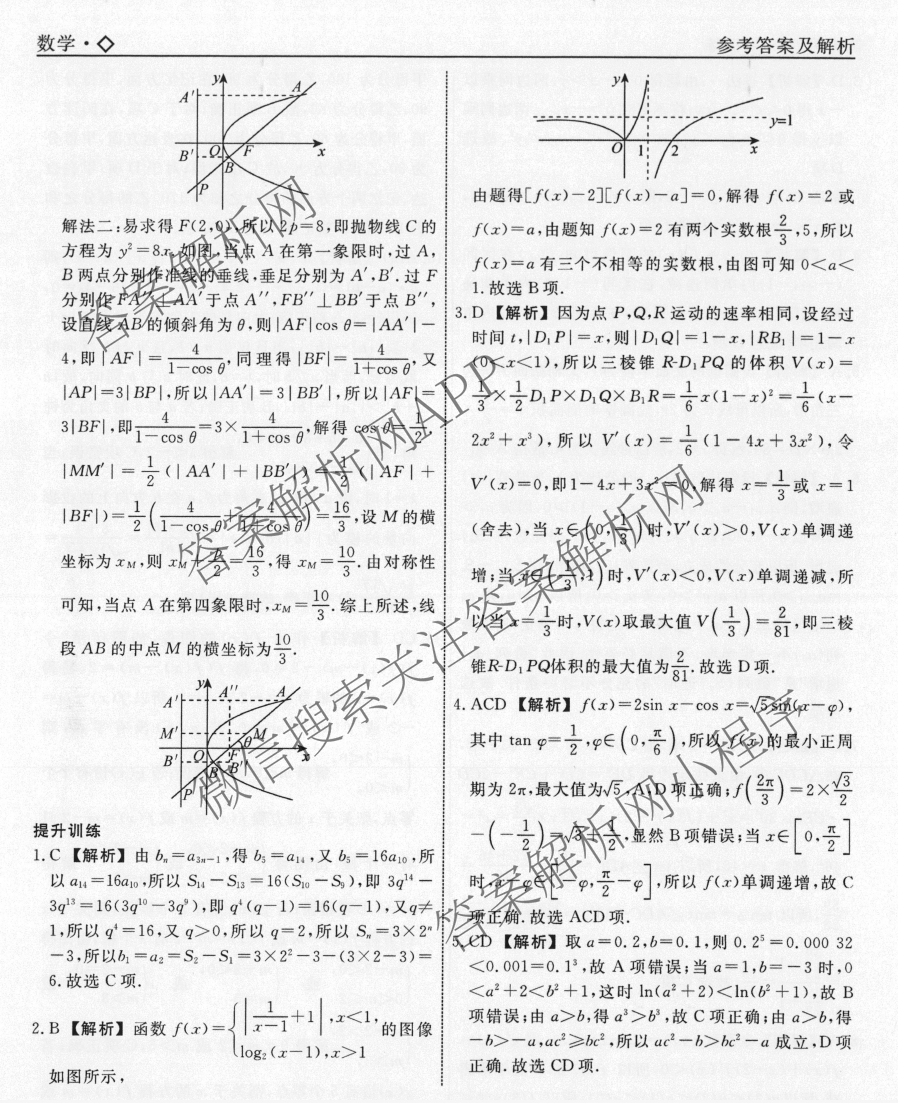 数学·◇
参考答案及解析
y
A'
A
B'
O
F
B
x
P
解法二:易求得 F(2,0),所以 2p=8,即抛物线 C 的
方程为 y²=8x.如图,当点 A 在第一象限时,过 A,
B 两点分别作准线的垂线,垂足分别为 A′,B′.过 F
分别作 FA″⊥AA′于点 A″,FB″⊥BB′于点 B″,
设直线 AB 的倾斜角为 θ,则|AF|cos θ=|AA′|−
4,即|AF|=4/(1−cos θ),同理得|BF|=4/(1+cos θ),又
|AP|=3|BP|,所以|AA′|=3|BB′|,所以|AF|=
3|BF|,即 4/(1−cos θ)=3×4/(1+cos θ),解得 cos θ=1/2,
|MM′|=1/2(|AA′|+|BB′|)=1/2(|AF|+
|BF|)=1/2(4/(1−cos θ)+4/(1+cos θ))=16/3,设 M 的横
坐标为 x_M,则 x_M+p/2=16/3,得 x_M=10/3.由对称性
可知,当点 A 在第四象限时,x_M=10/3.综上所述,线
段 AB 的中点 M 的横坐标为10/3.
y
A'
A''
A
M'
M
θ
B'
O
F
B
B''
x
P
提升训练
1.C 【解析】由 bₙ=a₃ₙ₋₁,得 b₅=a₁₄,又 b₅=16a₁₀,所
以 a₁₄=16a₁₀,所以 S₁₄−S₁₃=16(S₁₀−S₉),即 3q¹⁴−
3q¹³=16(3q¹⁰−3q⁹),即 q⁴(q−1)=16(q−1),又q≠
1,所以 q⁴=16,又 q>0,所以 q=2,所以 Sₙ=3×2ⁿ
−3,所以b₁=a₂=S₂−S₁=3×2²−3−(3×2−3)=
6.故选 C 项.
2.B 【解析】函数 f(x)={|1/(x−1)+1|,x<1, log₂(x−1),x>1 的图像
如图所示,
y
y=1
O
1
2
x
由题得[f(x)−2][f(x)−a]=0,解得 f(x)=2 或
f(x)=a,由题知 f(x)=2 有两个实数根2/3,5,所以
f(x)=a 有三个不相等的实数根,由图可知 0<a<
1.故选 B 项.
3.D 【解析】因为点 P,Q,R 运动的速率相同,设经过
时间 t,|D₁P|=x,则|D₁Q|=1−x,|RB₁|=1−x
(0<x<1),所以三棱锥 R-D₁PQ 的体积 V(x)=
1/3×1/2D₁P×D₁Q×B₁R=1/6x(1−x)²=1/6(x−
2x²+x³),所以 V′(x)=1/6(1−4x+3x²),令
V′(x)=0,即1−4x+3x²=0,解得 x=1/3或 x=1
(舍去),当 x∈(0,1/3)时,V′(x)>0,V(x)单调递
增;当 x∈(1/3,1)时,V′(x)<0,V(x)单调递减,所
以当 x=1/3时,V(x)取最大值 V(1/3)=2/81,即三棱
锥R-D₁PQ体积的最大值为2/81.故选 D 项.
4.ACD 【解析】f(x)=2sin x−cos x=√5sin(x−φ),
其中 tan φ=1/2,φ∈(0,π/6),所以 f(x)的最小正周
期为 2π,最大值为√5,A,D 项正确;f(2π/3)=2×√3/2
−(−1/2)=√3+1/2,显然 B 项错误;当 x∈[0,π/2]
时,x−φ∈[−φ,π/2−φ],所以 f(x)单调递增,故 C
项正确.故选 ACD 项.
5.CD 【解析】取 a=0.2,b=0.1,则 0.2⁵=0.000 32
<0.001=0.1³,故 A 项错误;当 a=1,b=−3 时,0
<a²+2<b²+1,这时 ln(a²+2)<ln(b²+1),故 B
项错误;由 a>b,得 a³>b³,故 C 项正确;由 a>b,得
−b>−a,ac²≥bc²,所以 ac²−b>bc²−a 成立,D 项
正确.故选 CD 项.
答案解析网
答案解析网APP
微信搜索关注答案解析网
答案解析网小程序